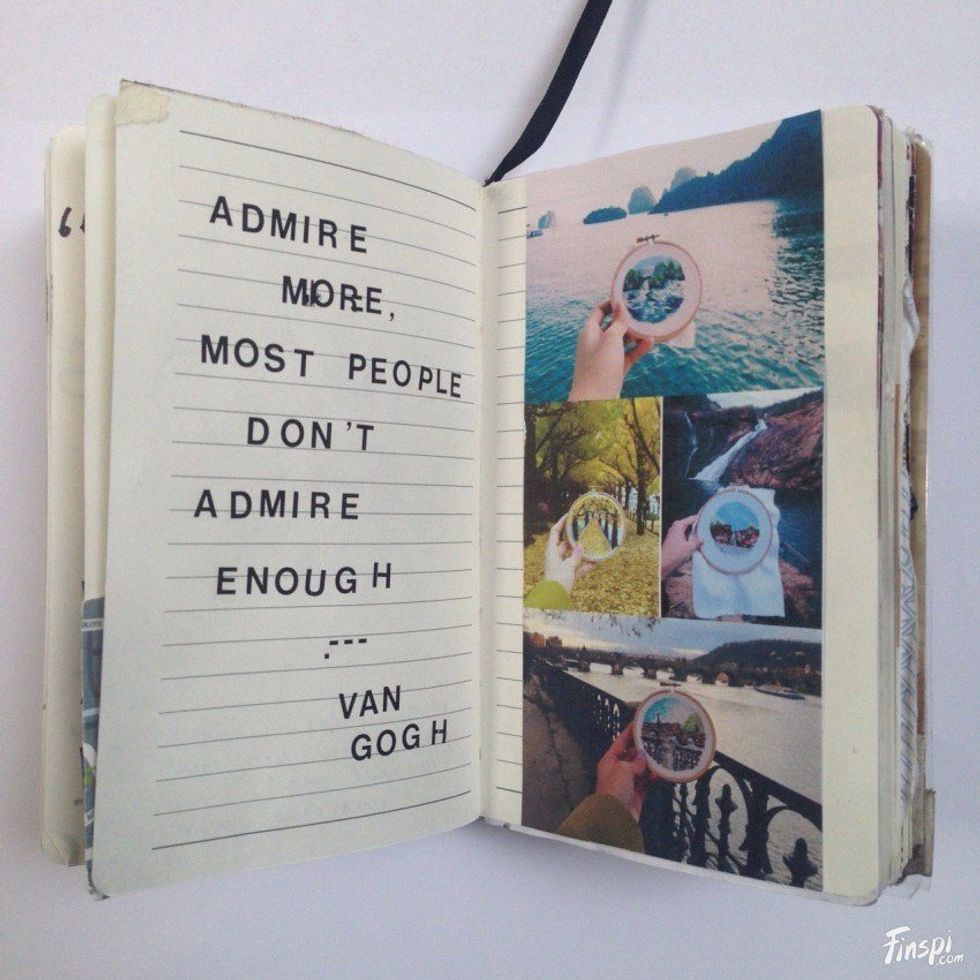 ADMIRE
MORE,
MOST PEOPLE
DON'T
ADMIRE
ENOUGH
.---
VAN
GOGH
Finspi
.com